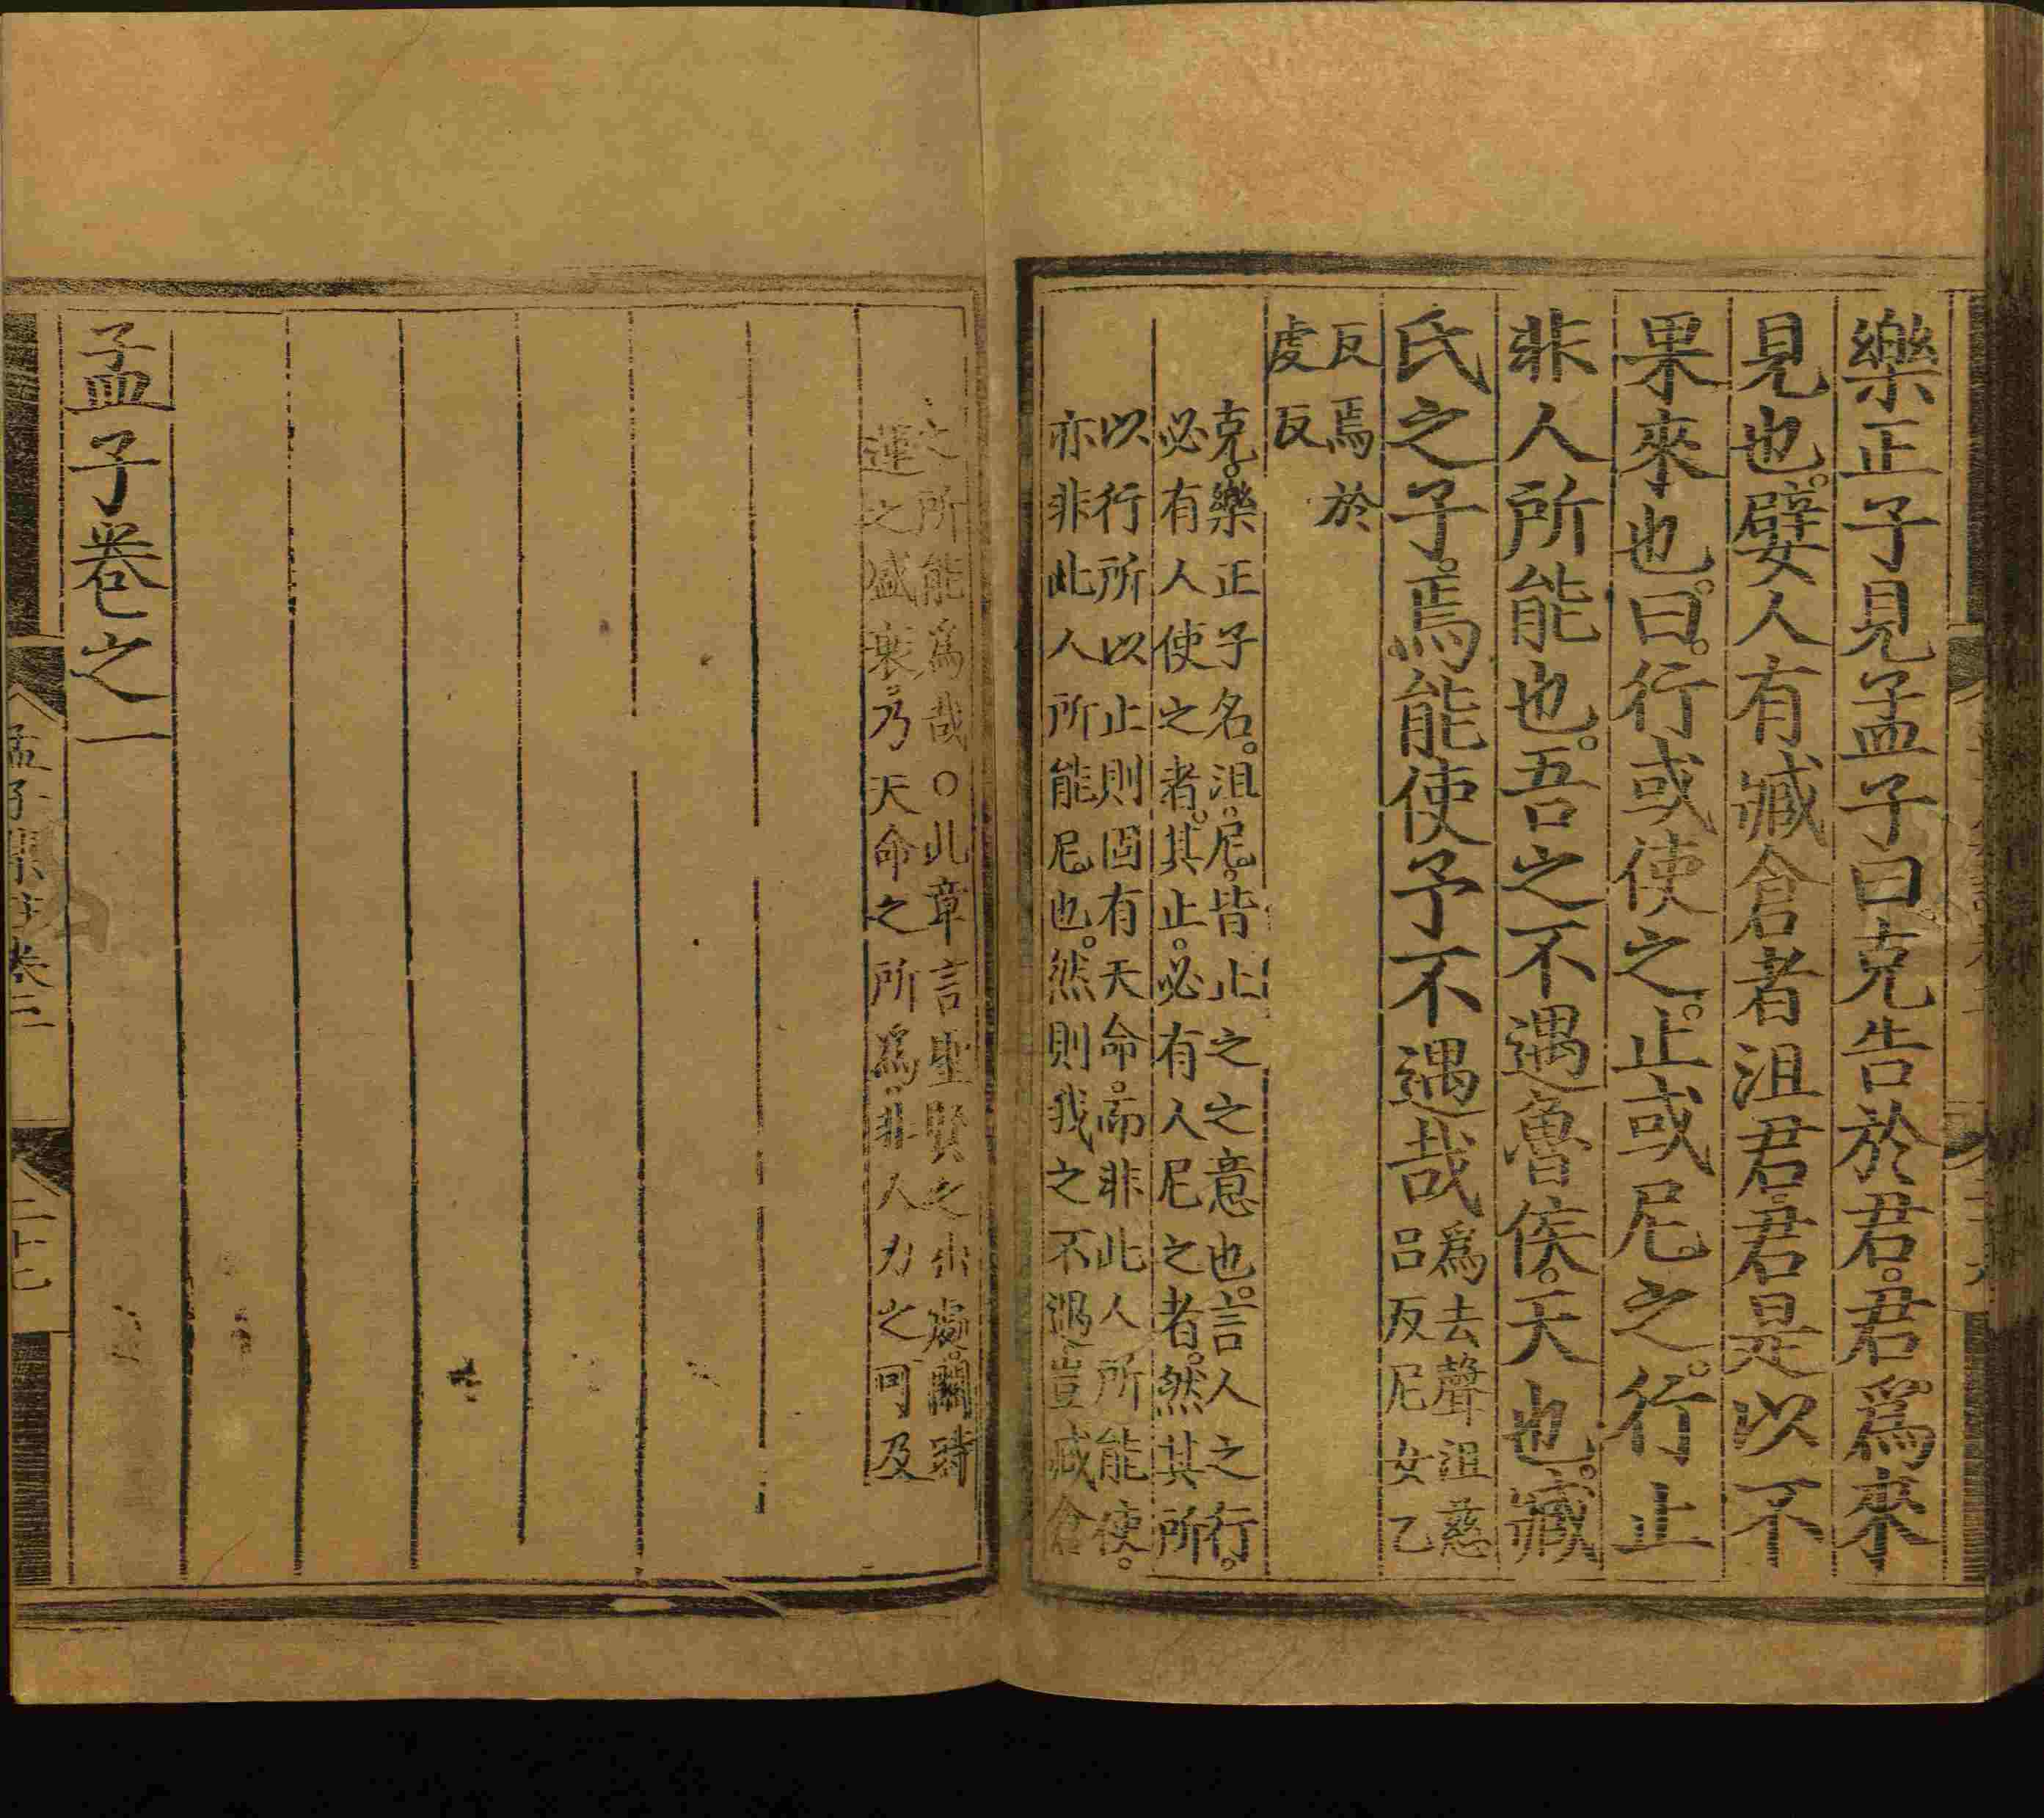 樂正子見孟子曰克告於君。君。爲來
見也。嬖人有臧倉者沮君。君是以不
果來也。曰。行或使之。止或尼。之。行止
非人所能也。吾之不遇魯侯。天也。臧
氏之子。焉能使予不遇哉爲去聲沮慈
呂反尼女乙
反焉於
虔反
克。樂正子名。沮。尼。皆止之之意也。言人之行。
必有人使之者。其止。必有人尼之者。然其所
以行所以止則固有天命。而非此人所能使。
亦非此人所能尼。也。然則我之不遇豈臧倉
之所能爲哉○此章言聖賢之出處。關時
運之盛衰。乃天命之所爲。非人力之可及
孟子卷之一
孟子集註卷二 二十七